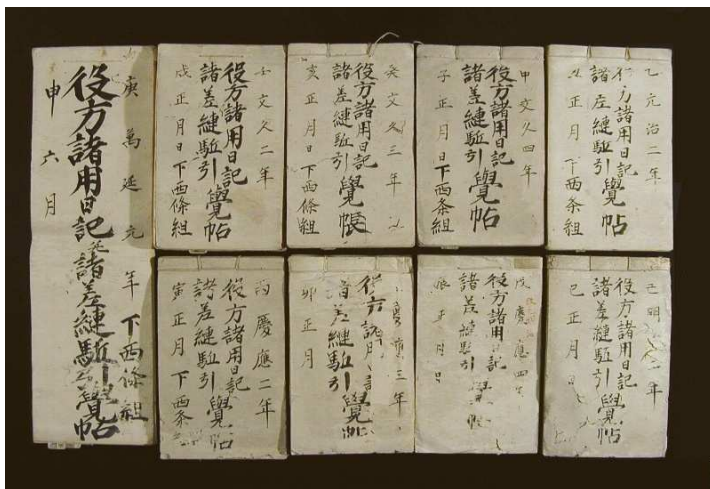 庚萬延元年下西條組
役方諸用日記
諸差縺駈引覺帖
申六月
壬文久二年
役方諸用日記
諸差縺駈引覺帖
戌正月日下西條組
癸文久三年
役方諸用日記
諸差縺駈引覺帳
亥正月日下西條組
甲文久四年
役方諸用日記
諸差縺駈引覺帖
子正月日下西条組
乙元治二年
方諸用日記
諸差縺駈引覺帖
丑正月日下西条組
丙慶應二年
役方諸用日記
諸差縺駈引覺帖
寅正月下西条
慶應三年
役方諸用日記
諸差縺駈引覺帖
卯正月
戊慶應四年
役方諸用日記
諸差縺駈引覺帖
辰正月日
己明二年
役方諸用日記
諸差縺駈引覺帖
巳正月日